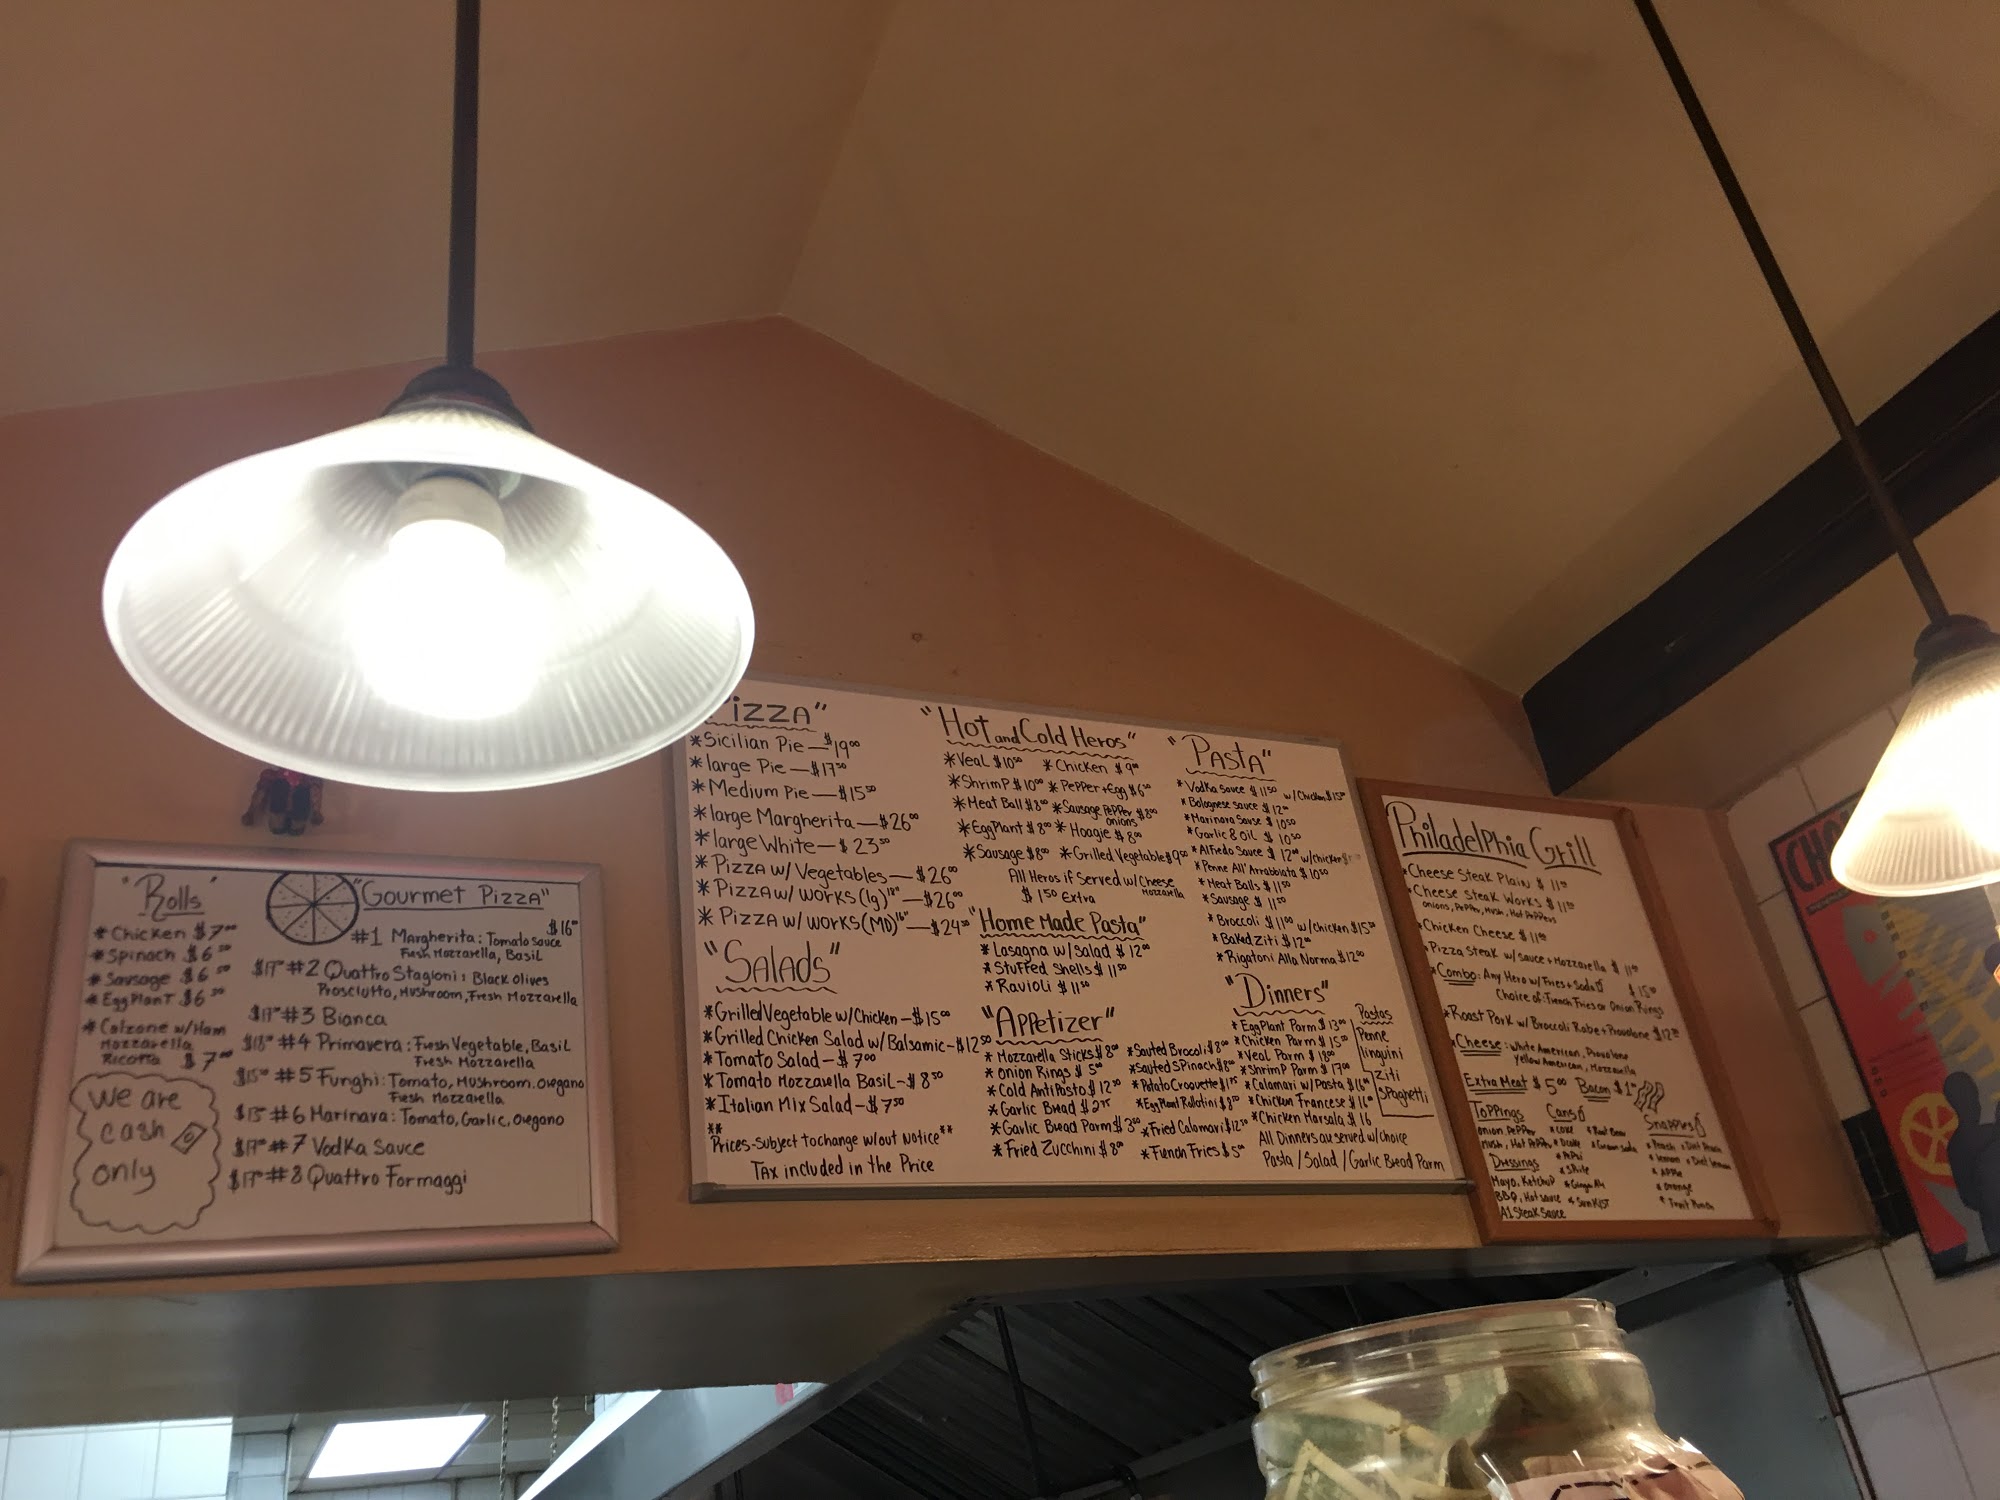 "Rolls"
*Chicken $7⁰⁰
*Spinach $6⁵⁰
*Sausage $6⁵⁰
*EggPlanT $6⁵⁰
*Calzone w/Ham
Mozzarella
Ricotta $7⁰⁰
We are
cash
only
"Gourmet Pizza"
$16⁰⁰
#1 Margherita: Tomato sauce
Fresh Mozzarella, Basil
$17⁰⁰ #2 Quattro Stagioni: Black Olives
Prosciutto, Mushroom, Fresh Mozzarella
$17⁰⁰ #3 Bianca
$18⁰⁰ #4 Primavera: Fresh Vegetable, Basil
Fresh Mozzarella
$15⁵⁰ #5 Funghi: Tomato, Mushroom, Oregano
Fresh Mozzarella
#6 Marinara: Tomato, Garlic, Oregano
$17⁰⁰ #7 Vodka Sauce
$17⁰⁰ #8 Quattro Formaggi
Pizza"
*Sicilian Pie—$19⁰⁰
*large Pie—$17⁵⁰
*Medium Pie—$15⁵⁰
*large Margherita—$26⁰⁰
*large White—$23⁵⁰
*Pizza w/ Vegetables—$26⁰⁰
*Pizza w/ works (lg)18"—$26⁰⁰
*Pizza w/ works (MD)16"—$24⁵⁰
"Salads"
*Grilled Vegetable w/Chicken—$15⁰⁰
*Grilled Chicken Salad w/Balsamic—$12⁵⁰
*Tomato Salad—$7⁰⁰
*Tomato Mozzarella Basil—$8⁵⁰
*Italian Mix Salad—$7⁵⁰
**Prices-subject to change w/out Notice**
Tax included in the Price
"Hot and Cold Heros"
*Veal $10⁵⁰ *Chicken $9⁰⁰
*Shrimp $10⁰⁰ *Pepper+Egg $6⁵⁰
*Meat Ball $8⁰⁰ *Sausage Pepper onions $8⁰⁰
*EggPlant $8⁰⁰ *Hoagie $8⁰⁰
*Sausage $8⁰⁰ *Grilled Vegetable $9⁵⁰
All Heros if served w/ Cheese
Mozzarella
$1⁵⁰ Extra
"Home Made Pasta"
*Lasagna w/Salad $12⁰⁰
*Stuffed Shells $11⁵⁰
*Ravioli $11⁵⁰
"Appetizer"
*Mozzarella Sticks $8⁰⁰ *Sauted Brocoli $8⁰⁰
*Onion Rings $5⁰⁰ *Sauted Spinach $8⁰⁰
*Cold AntiPasto $12⁵⁰ *Potato Croquette $1⁷⁵
*Garlic Bread $2⁷⁵ *EggPlant Rollatini $8⁰⁰
*Garlic Bread Parm $3⁵⁰ *Fried Calamari $12⁵⁰
*Fried Zucchini $8⁰⁰ *French Fries $5⁰⁰
"Pasta"
*Vodka sauce $11⁵⁰ w/Chicken $15⁵⁰
*Bolognese sauce $12⁰⁰
*Marinara Sause $10⁵⁰
*Garlic & Oil $10⁵⁰
*Alfredo Sauce $12⁰⁰ w/chicken
*Penne All'Arrabbiata $10⁵⁰
*Meat Balls $11⁵⁰
*Sausage $11⁵⁰
*Broccoli $11⁰⁰ w/chicken $15⁵⁰
*Baked Ziti $12⁰⁰
*Rigatoni Alla Norma $12⁰⁰
"Dinners"
*EggPlant Parm $13⁰⁰
*Chicken Parm $15⁵⁰
*Veal Parm $18⁰⁰
*Shrimp Parm $17⁰⁰
*Calamari w/Pasta $16⁰⁰
*Chicken Francese $16⁰⁰
*Chicken Marsala $16
All Dinners are served w/choice
Pasta/Salad/Garlic Bread Parm
Pastas
Penne
linguini
Ziti
Spaghetti
Philadelphia Grill
*Cheese Steak Plain $11⁰⁰
*Cheese Steak Works $11⁵⁰
onions, Pepper, Mush, Hot Peppers
*Chicken Cheese $11⁰⁰
*Pizza Steak w/ sauce+Mozzarella $11⁰⁰
*Combo: Any Hero w/Fries+Soda $15⁵⁰
Choice of: French Fries or Onion Rings
*Roast Pork w/ Broccoli Robe+Provolone $12⁵⁰
*Cheese: White American, Provolone
Yellow American, Mozzarella
Extra Meat $5⁰⁰ Bacon $1⁰⁰
Toppings
onion, Pepper
Mush, Hot Pepper
Dressings
Mayo, Ketchup
BBQ, Hot sauce
A1 Steak Sauce
Cans
*Coke *Root Beer
*Dcoke *Cream soda
*Pepsi
*Sprite
*Ginger Ale
*Sunkist
Snapples
*Peach *Diet Peach
*lemon *Diet lemon
*Apple
*Orange
*Fruit Punch